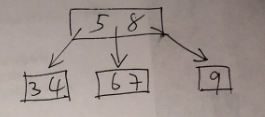 5 8
3 4 6 7 9